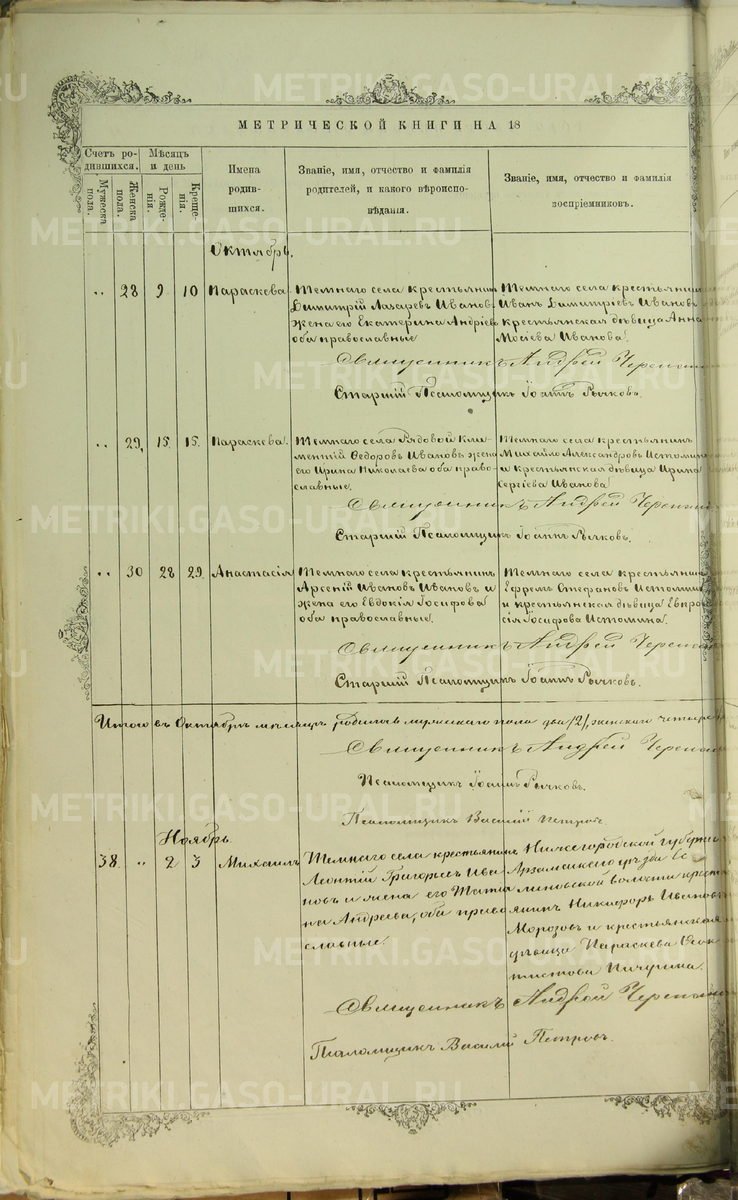 МЕТРИЧЕСКОЙ КНИГИ НА 18
Счетъ ро-
дившихся.
Мѣсяцъ
и день
Мужеска
пола.
Женска
пола.
Рожде-
нія.
Креще-
нія.
Имена
родив-
шихся.
Званіе, имя, отчество и фамилія
родителей, и какого вѣроиспо-
вѣданія.
Званіе, имя, отчество и фамилія
воспріемниковъ.
Октябрь.
" 28 9 10 Параскева.
Темнаго села крестьянинъ
Димитрій Лазаревъ Ивановъ
жена его Екатерина Андреева
оба православные
Темнаго села крестьянинъ
Иванъ Димитріевъ Ивановъ
крестьянская дѣвица Анна
Мосіева Иванова.
Священникъ Андрей
Старшій Псаломщикъ Іоаннъ Рычковъ.
" 29. 15. 15. Параскева.
Темнаго села Рядовой Кли-
ментій Ѳедоровъ Ивановъ жена
его Ирина Николаева оба право-
славные.
Темнаго села крестьянинъ
Михайло Александровъ Истомин
и крестьянская дѣвица Ирина
Сергіева Иванова
Священникъ Андрей
Старшій Псаломщикъ Іоаннъ Рычковъ.
" 30 28 29. Анастасія
Темнаго села крестьянинъ
Арсеній Ивановъ Ивановъ и
жена его Евдокія Іосифова
оба православные.
Темнаго села крестьянинъ
Ефремъ Стефановъ Истомин
и крестьянская дѣвица Евпро
сія Іосифова Истомина.
Священникъ Андрей
Старшій Псаломщикъ Іоаннъ Рычковъ.
Итого въ Октябрѣ мѣсяцѣ родилось мужескаго пола два /2/, женскаго четыре
Священникъ Андрей
Псаломщикъ Іоаннъ Рычковъ.
Псаломщикъ Василій Петровъ.
Ноябрь
38. " 2 3 Михаилъ
Темнаго села крестьянинъ
Леонтій Григорьевъ Ива
новъ и жена его Татья
на Андреева, оба право
славные.
Нижегородской губерніи
Арзамасскаго уѣзда
волости кресть
янинъ Никифоръ Ивановъ
Морозовъ и крестьянская
дѣвица Параскева Ѳеок
тистова Пичугина.
Священникъ Андрей
Псаломщикъ Василій Петровъ.
METRIKI.GASO-URAL.RU